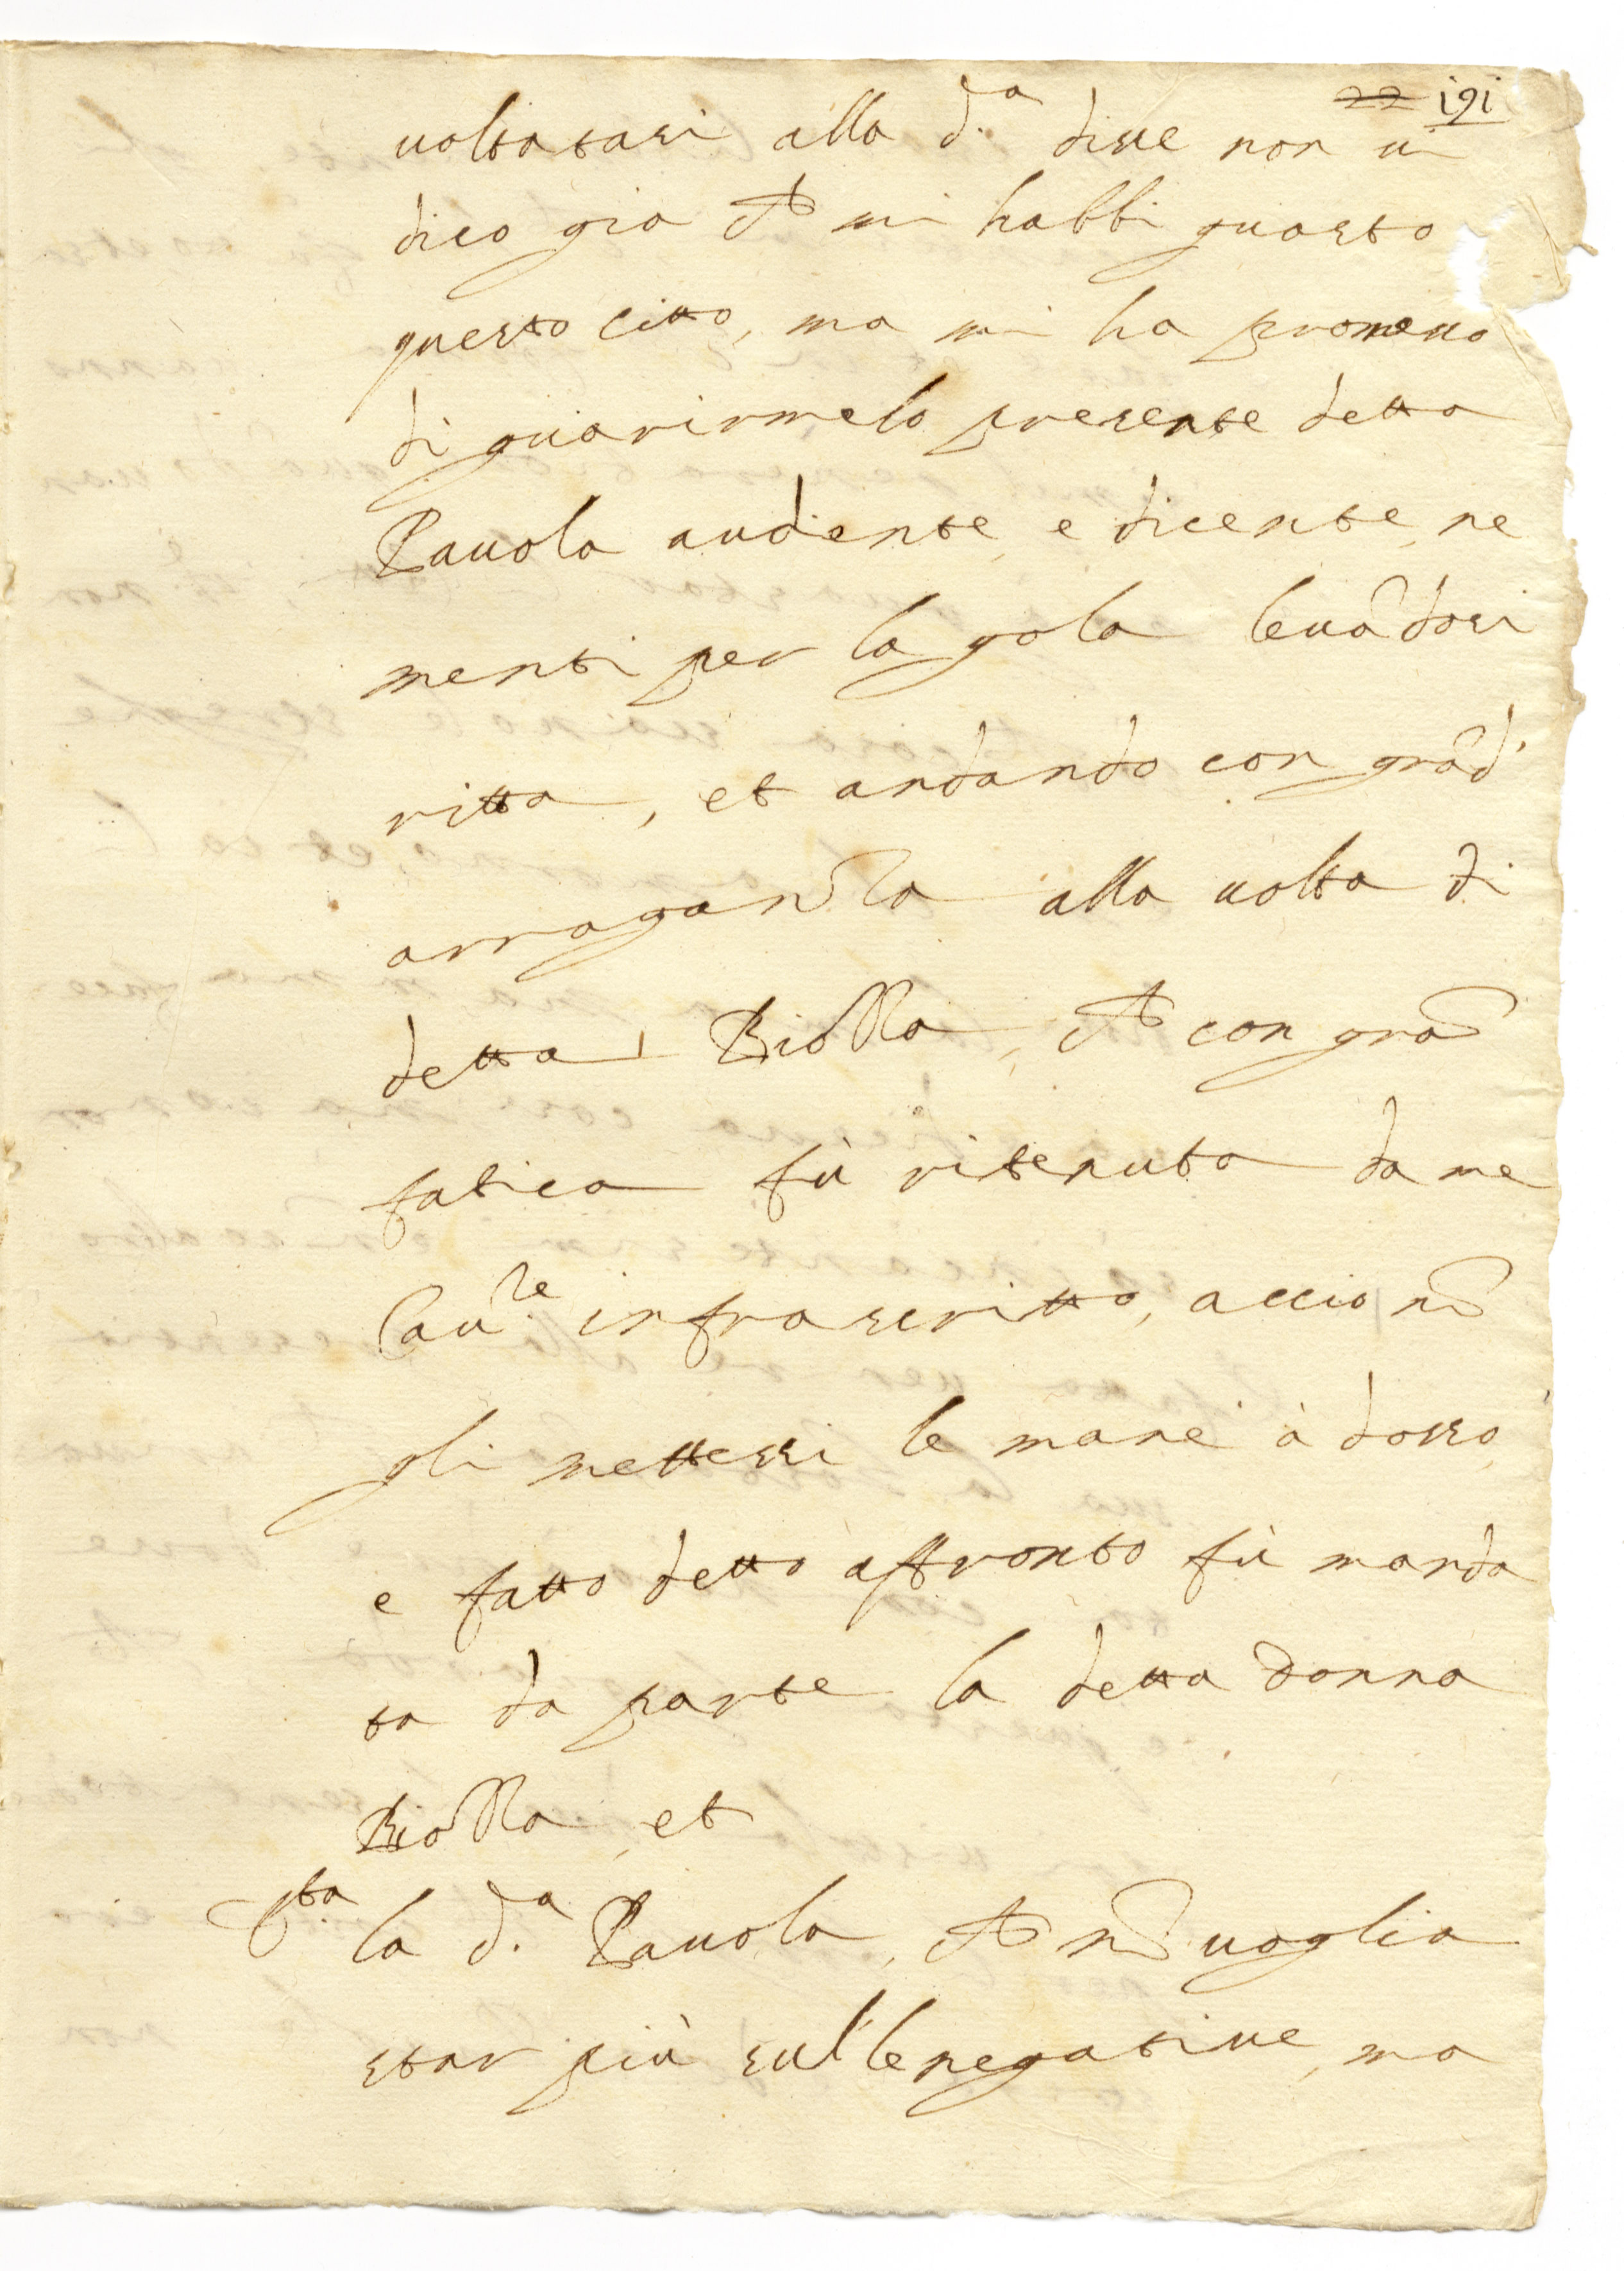 22 191
uoltatasi alla d.a disse non ui
dico gia che mi habbi guasto
questo citto, ma mi ha promesso
di guarirmelo presente detta
Pauola audiente, e dicente, ne
menti per la gola leuãdosi
ritta, et andando con grãd'
arroganza alla uolta di
detta Biolla, che con grã
fatica fù ritenuta da me
Can.re infrascritto, accio nõ
gli mettessi le mane à dosso,
e fatto detto affronto fù manda
ta da parte la detta donna
Biolla, et
la d.a Pauola, che nõ uoglia
star più sulle negatiue, ma